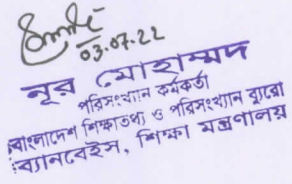 03.07.22
নূর মোহাম্মদ
পরিসংখ্যান কর্মকর্তা
বাংলাদেশ শিক্ষাতথ্য ও পরিসংখ্যান ব্যুরো
ব্যানবেইস, শিক্ষা মন্ত্রণালয়